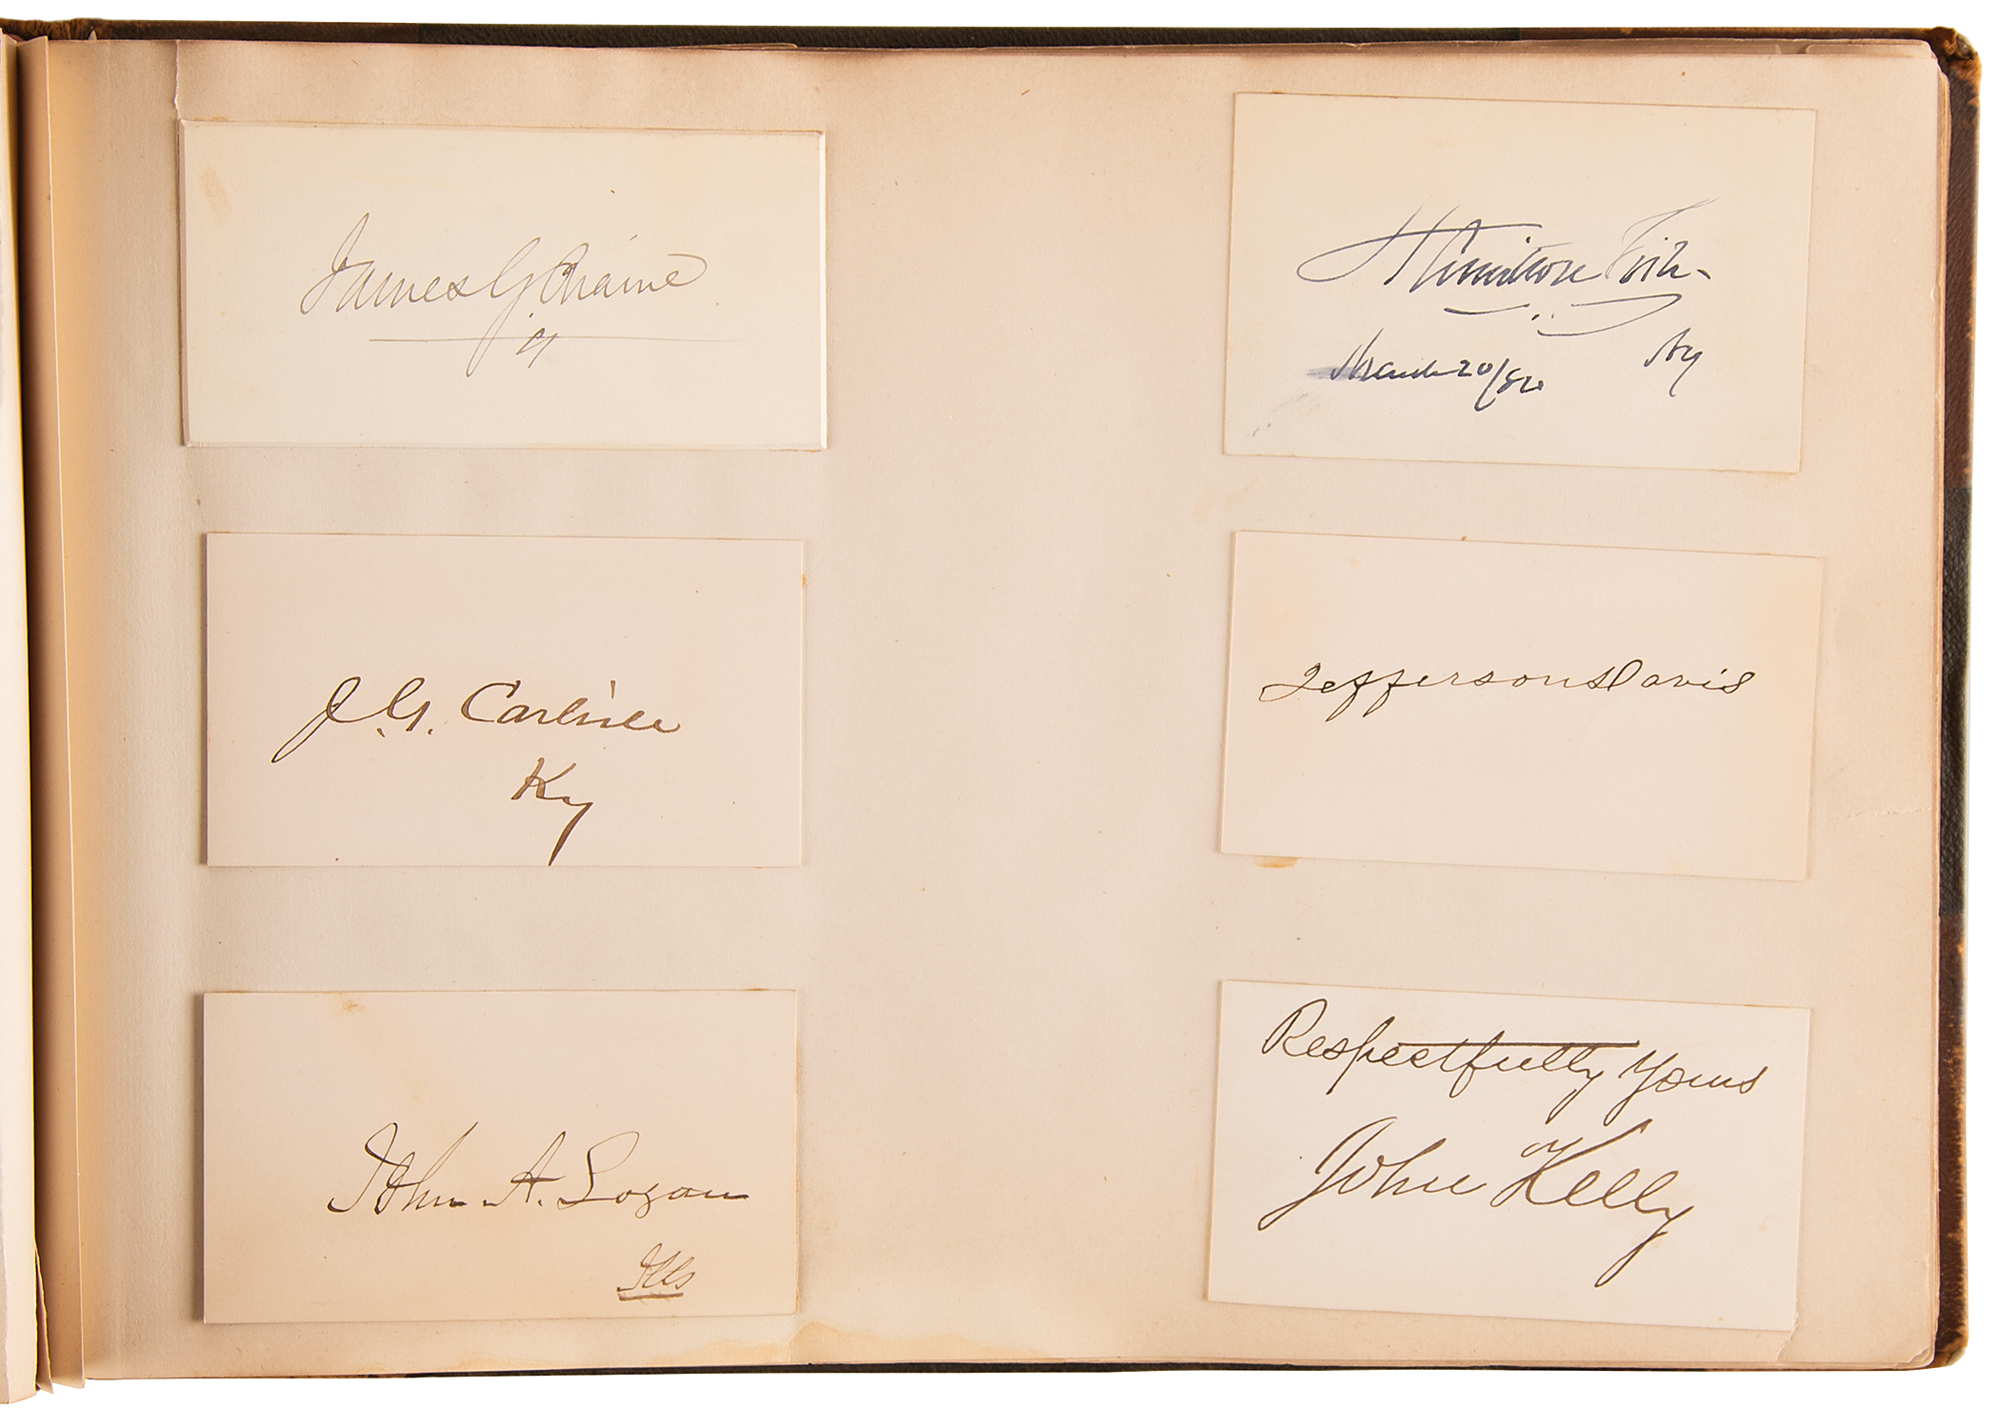 James G. Blaine
J. G. Carlisle
Ky
John A. Logan
Ills
Hamilton Fish
March 20/80 NY
Jefferson Davis
Respectfully Yours
John Kelly